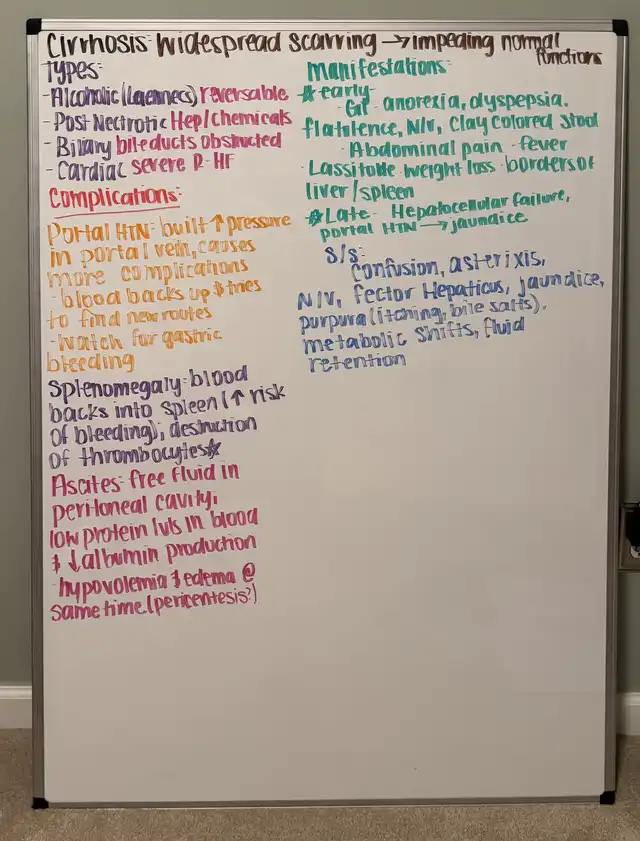 Cirrhosis: Widespread scarring → impeding normal functions
Types:
- Alcoholic (Laennecs) reversable
- Post Necrotic Hep/Chemicals
- Biliary bile ducts obstructed
- Cardiac severe R-HF
Complications:
Portal HTN: built ↑ pressure
in portal vein, causes
more complications
- blood backs up & tries
to find new routes
- Watch for gastric
bleeding
Splenomegaly: blood
backs into spleen (↑ risk
of bleeding); destruction
of thrombocytes☆
Ascites: free fluid in
peritoneal cavity,
low protein lvls in blood
& ↓ albumin production
- hypovolemia & edema @
same time (pericentesis?)
Manifestations:
☆early-
- GI: anorexia, dyspepsia.
flatulence, N/V, Clay colored stool
- Abdominal pain - fever
- Lassitude - weight loss - borders of
liver/spleen
☆Late- Hepatocellular failure,
portal HTN → jaundice
S/S:
confusion, asterixis,
N/V, fector Hepaticus, jaundice,
purpura (itching, bile salts).
metabolic shifts, fluid
retention